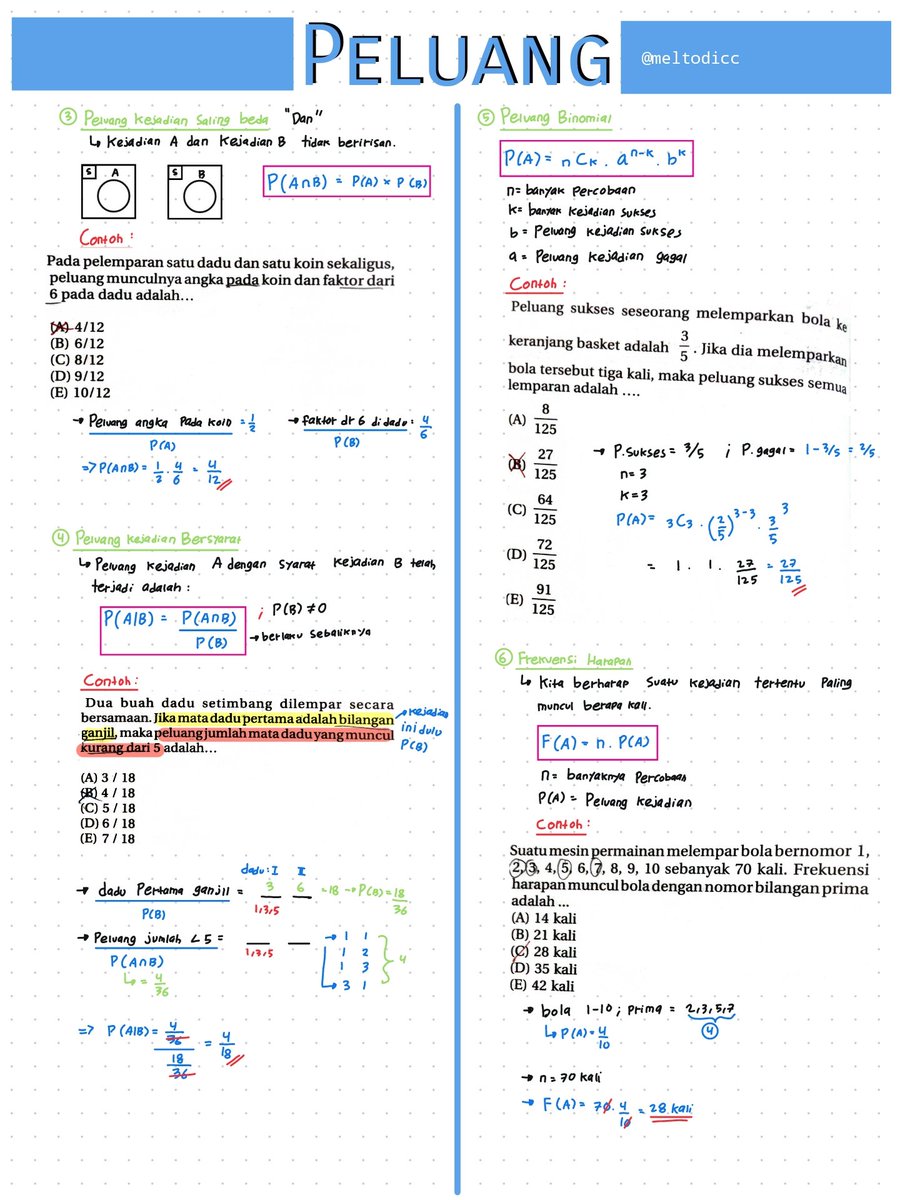 PELUANG
@meltodicc
③ Peluang kejadian Saling beda "Dan"
↳ Kejadian A dan Kejadian B tidak beririsan.
S A
S B
P(A∩B) = P(A) × P(B)
Contoh :
Pada pelemparan satu dadu dan satu koin sekaligus,
peluang munculnya angka pada koin dan faktor dari
6 pada dadu adalah...
(A) 4/12
(B) 6/12
(C) 8/12
(D) 9/12
(E) 10/12
→ Peluang angka Pada koin = 1/2
P(A)
→ faktor dr 6 di dadu : 4/6
P(B)
=> P(A∩B) = 1/2 . 4/6 = 4/12
④ Peluang kejadian Bersyarat
↳ Peluang kejadian A dengan syarat kejadian B telah
terjadi adalah :
P(A|B) = P(A∩B)/P(B)
; P(B) ≠ 0
→ berlaku sebaliknya
Contoh :
Dua buah dadu setimbang dilempar secara
bersamaan. Jika mata dadu pertama adalah bilangan
ganjil, maka peluang jumlah mata dadu yang muncul
kurang dari 5 adalah...
→ kejadian
ini dulu
P(B)
(A) 3 / 18
(B) 4 / 18
(C) 5 / 18
(D) 6 / 18
(E) 7 / 18
dadu : I II
→ dadu Pertama ganjil = 3 6 = 18 → P(B) = 18/36
P(B)
1,3,5
→ Peluang jumlah < 5 =
1,3,5
P(A∩B)
↳ = 4/36
→ 1 1
1 2
1 3
→ 3 1
4
=> P(A|B) = 4/36 / 18/36 = 4/18
⑤ Peluang Binomial
P(A) = nCk . a^n-k . b^k
n = banyak percobaan
k = banyak kejadian sukses
b = Peluang kejadian sukses
a = Peluang kejadian gagal
Contoh :
Peluang sukses seseorang melemparkan bola ke
keranjang basket adalah 3/5. Jika dia melemparkan
bola tersebut tiga kali, maka peluang sukses semua
lemparan adalah ....
(A) 8/125
(B) 27/125
(C) 64/125
(D) 72/125
(E) 91/125
→ P.sukses = 3/5 ; P.gagal = 1 - 3/5 = 2/5
n = 3
k = 3
P(A) = 3C3 . (2/5)^3-3 . 3/5^3
= 1 . 1 . 27/125 = 27/125
⑥ Frekuensi Harapan
↳ Kita berharap suatu kejadian tertentu Paling
muncul berapa kali.
F(A) = n . P(A)
n = banyaknya Percobaan
P(A) = Peluang kejadian
Contoh :
Suatu mesin permainan melempar bola bernomor 1,
2, 3, 4, 5, 6, 7, 8, 9, 10 sebanyak 70 kali. Frekuensi
harapan muncul bola dengan nomor bilangan prima
adalah ...
(A) 14 kali
(B) 21 kali
(C) 28 kali
(D) 35 kali
(E) 42 kali
→ bola 1-10 ; prima = 2,3,5,7
4
↳ P(A) = 4/10
→ n = 70 kali
→ F(A) = 70 . 4/10 = 28 kali